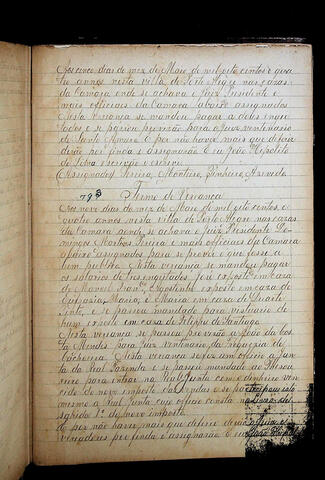 Aos cinco dias do mez de Maio de mil oito centos e qua
tro annos nesta villa de Porto Alegre nas cazas
da Camara onde se achava o Juiz Presidente e
mais officiaes da Camara abaixo assignados
Nesta veriança se mandou pagar a dois engei
tados e se passou provisão para o Juiz ventenario
de Santo Amaro. E por não haver mais que deferir
derão por finda e assignarão. E eu João Hipolito
de Lima escrivão o escrevi.
(Assignados) Pereira, Monteiro, Pinheiro, Azevedo.
793 Termo de Veriança
Aos nove dias do mez de Maio de mil oito centos e
quatro annos nesta villa de Porto Alegre nas cazas
da Camara aonde se achava o Juiz Presidente Do
mingos Martins Pereira e mais officiaes da Camara
abaixo assignados para se prover o que fosse a
bem publico. Nesta veriança se mandou pagar
os salarios de tres engeitados. José exposto em caza
de Manoel exposto em caza de
Eufrazia, Maria, e Maria em casa de Duarte
Pinto, e se passou mandado para vistuario de
hum exposto em casa de Felipa de Santiago.
Nesta veriança se passou provisão a João da Cos
ta Mendes para Juiz ventenario da Freguezia da
Cachoeira. Nesta veriança se fez um officio a Jun
ta da Real Fazenda e se passou mandado ao Thesou
reiro para entrar na Real Junta com o dinheiro ven
cido do novo imposto
mesmo a Real Junta cujo officio consta
gistro 1º do novo imposto.
E por não haver mais que deferir
vereadores por finda e assignarão E eu